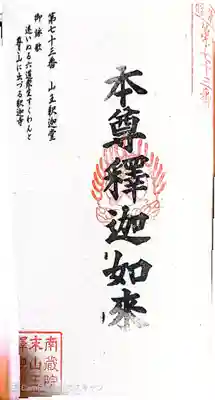 第七十三番 山王釈迦堂
御詠歌
迷いぬる六道衆生すくわんと
尊き山に出づる釈迦寺
本尊釋迦如來
南蔵院
末山王
釋迦